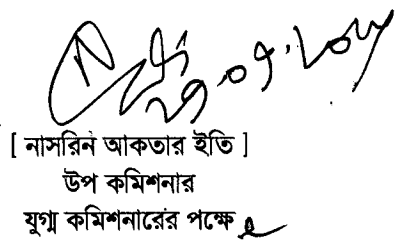 [ নাসরিন আকতার ইতি ]
উপ কমিশনার
যুগ্ম কমিশনারের পক্ষে